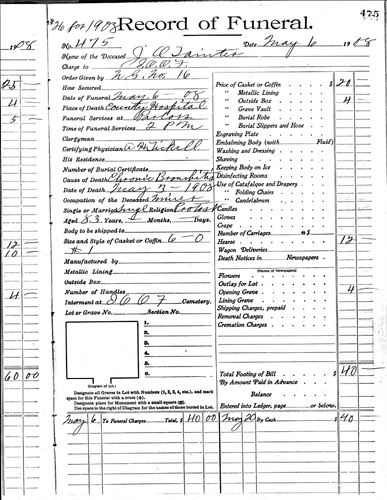 475
Record of Funeral.
1908
No. 475 Date May 6 1908
Name of the Deceased J A
Charge to I.O.O.F.
Order Given by N.G. No. 16
How Secured
Date of Funeral May 6 - 08
Place of Death County Hospital
Funeral Services at Parlors
Time of Funeral Services 2 P M
Clergyman
Certifying Physician
His Residence
Number of Burial Certificate
Cause of Death Chronic Bronchitis
Date of Death May 3 - 1908
Occupation of the Deceased Miner
Single or Married Single Religion Protest
Aged 83 Years, Months, Days.
Body to be shipped to
Size and Style of Casket or Coffin 6-0
#1
Manufactured by
Metallic Lining
Outside Box
Number of Handles
Interment at I O O F Cemetery.
Lot or Grave No. Section No.
1.
2.
3.
4.
5.
6.
(Diagram of Lot.)
Designate all Graves in Lot with Numbers (1, 2, 3, 4, etc.), and mark
space for this Funeral with a cross (+).
Designate place for Monument with a small square (□).
Use space to the right of Diagram for the names of those buried in Lot.
Price of Casket or Coffin $ 20
" Metallic Lining
" Outside Box 4
" Grave Vault
" Burial Robe
" Burial Slippers and Hose
Engraving Plate
Embalming Body (with Fluid)
Washing and Dressing
Shaving
Keeping Body on Ice
Disinfecting Rooms
Use of Catafalque and Drapery
" Folding Chairs
" Candelabrum
Candles
Gloves
Crape
Number of Carriages @ $
Hearse 12
Wagon Deliveries
Death Notices in Newspapers
(Names of Newspapers)
Flowers
Outlay for Lot
Opening Grave 4
Lining Grave
Shipping Charges, prepaid
Removal Charges
Cremation Charges
Total Footing of Bill $ 40
By Amount Paid in Advance
Balance
Entered into Ledger, page or below.
May 6 To Funeral Charges Total, $ 40 00 May 20 By Cash $ 40
4
5
12
10
4
60 00